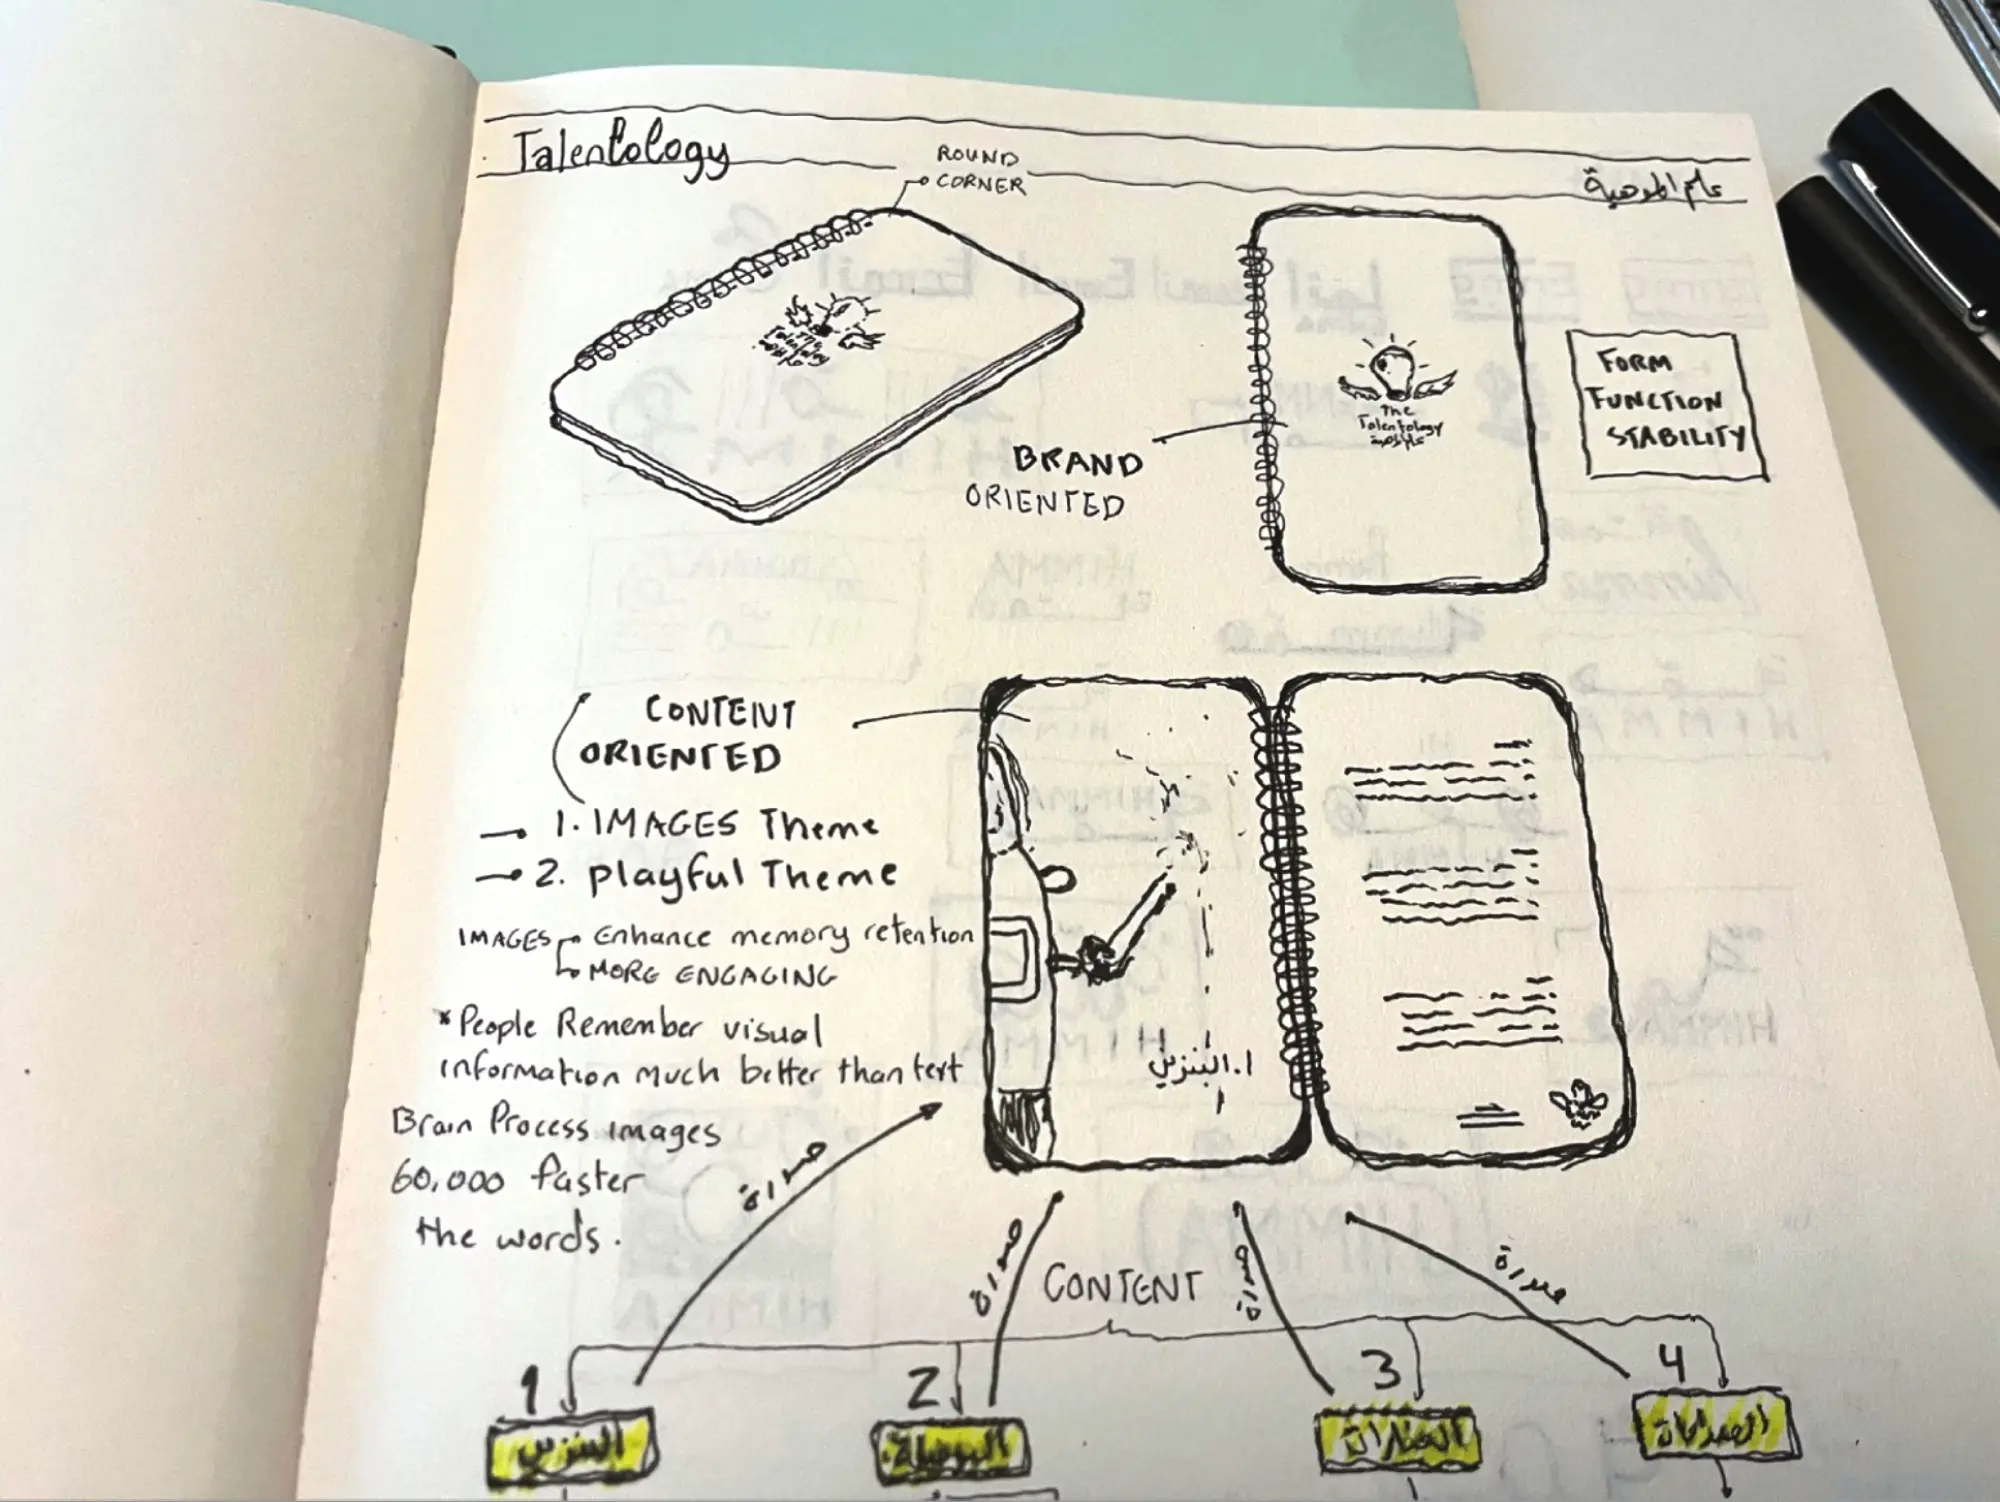 Talentology
ROUND
CORNER
علم الموهبة
The
Talentology
علم الموهبة
FORM
FUNCTION
STABILITY
BRAND
ORIENTED
CONTENT
ORIENTED
1. IMAGES Theme
2. Playful Theme
IMAGES Enhance memory retention
MORE ENGAGING
* People Remember visual
information much better than text
Brain Process images
60,000 faster
the words.
١. البنزين
صورة
صورة
صورة
صورة
CONTENT
1
2
3
4
البنزين
البوصلة